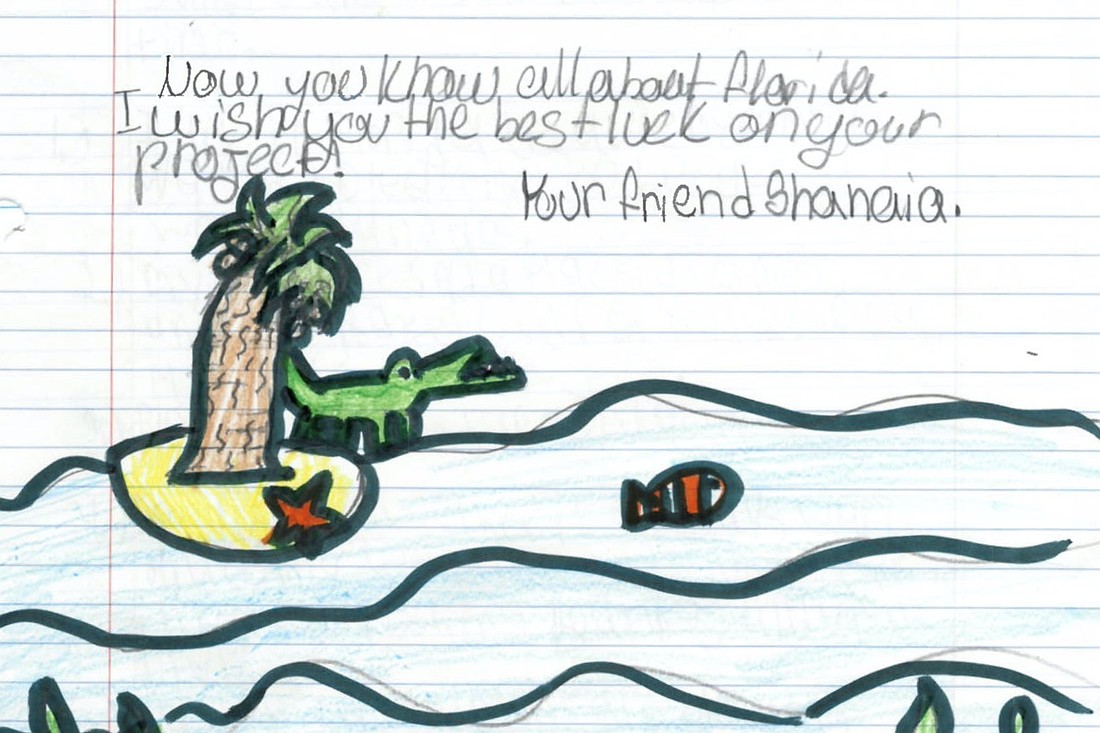 Now you know all about florida.
I wish you the best luck on your
project!
Your friend Shanaia.